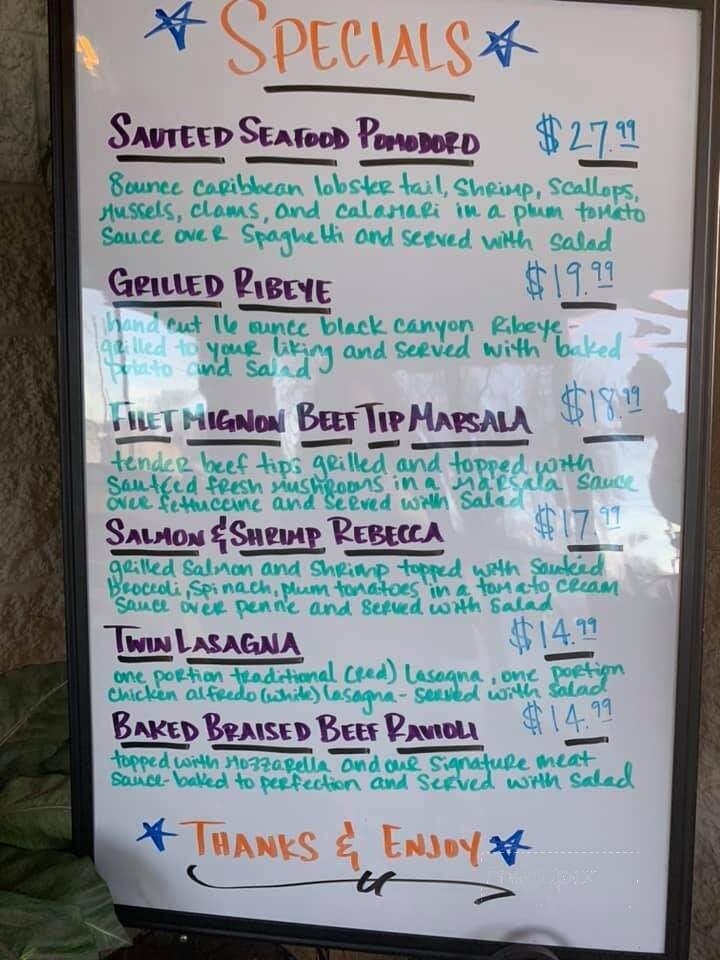 SPECIALS
SAUTEED SEAFOOD POMODORO $27.99
8ounce caribbean lobster tail, Shrimp, Scallops,
Mussels, clams, and calamari in a plum tomato
Sauce over Spaghetti and served with salad
GRILLED RIBEYE $19.99
hand cut 16 ounce black canyon Ribeye-
grilled to your liking and served with baked
potato and Salad
FILET MIGNON BEEF TIP MARSALA $18.99
tender beef tips grilled and topped with
Sauteed fresh Mushrooms in a Marsala Sauce
over fettuccine and served with Salad
SALMON & SHRIMP REBECCA $17.99
grilled Salmon and Shrimp topped with Sauteed
Broccoli, Spinach, plum tomatoes in a tomato cream
Sauce over penne and served with Salad
TWIN LASAGNA $14.99
one portion traditional (red) Lasagna, one portion
chicken alfredo (white) lasagna- served with Salad
BAKED BRAISED BEEF RAVIOLI $14.99
topped with Mozzarella and our Signature meat
Sauce- baked to perfection and served with Salad
THANKS & ENJOY